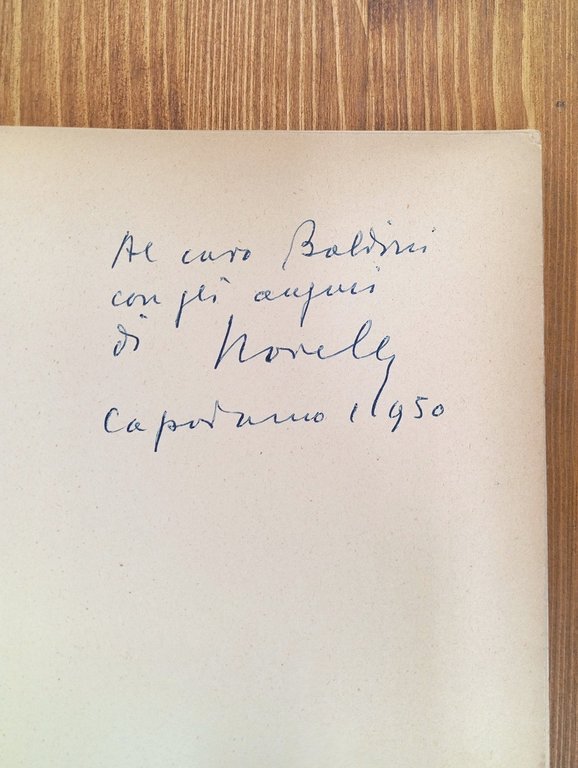 Al caro Baldini
con gli auguri
di Novello
Capodanno 1950